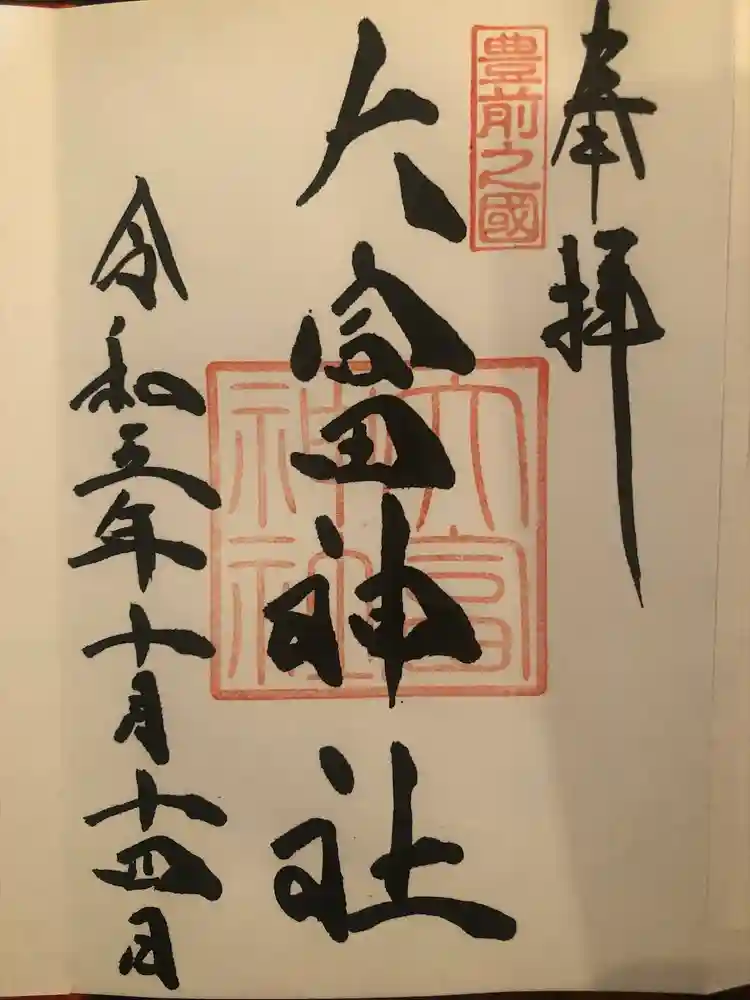 奉拝
豊前之國
大富神社
大富神社
令和三年十月十四日